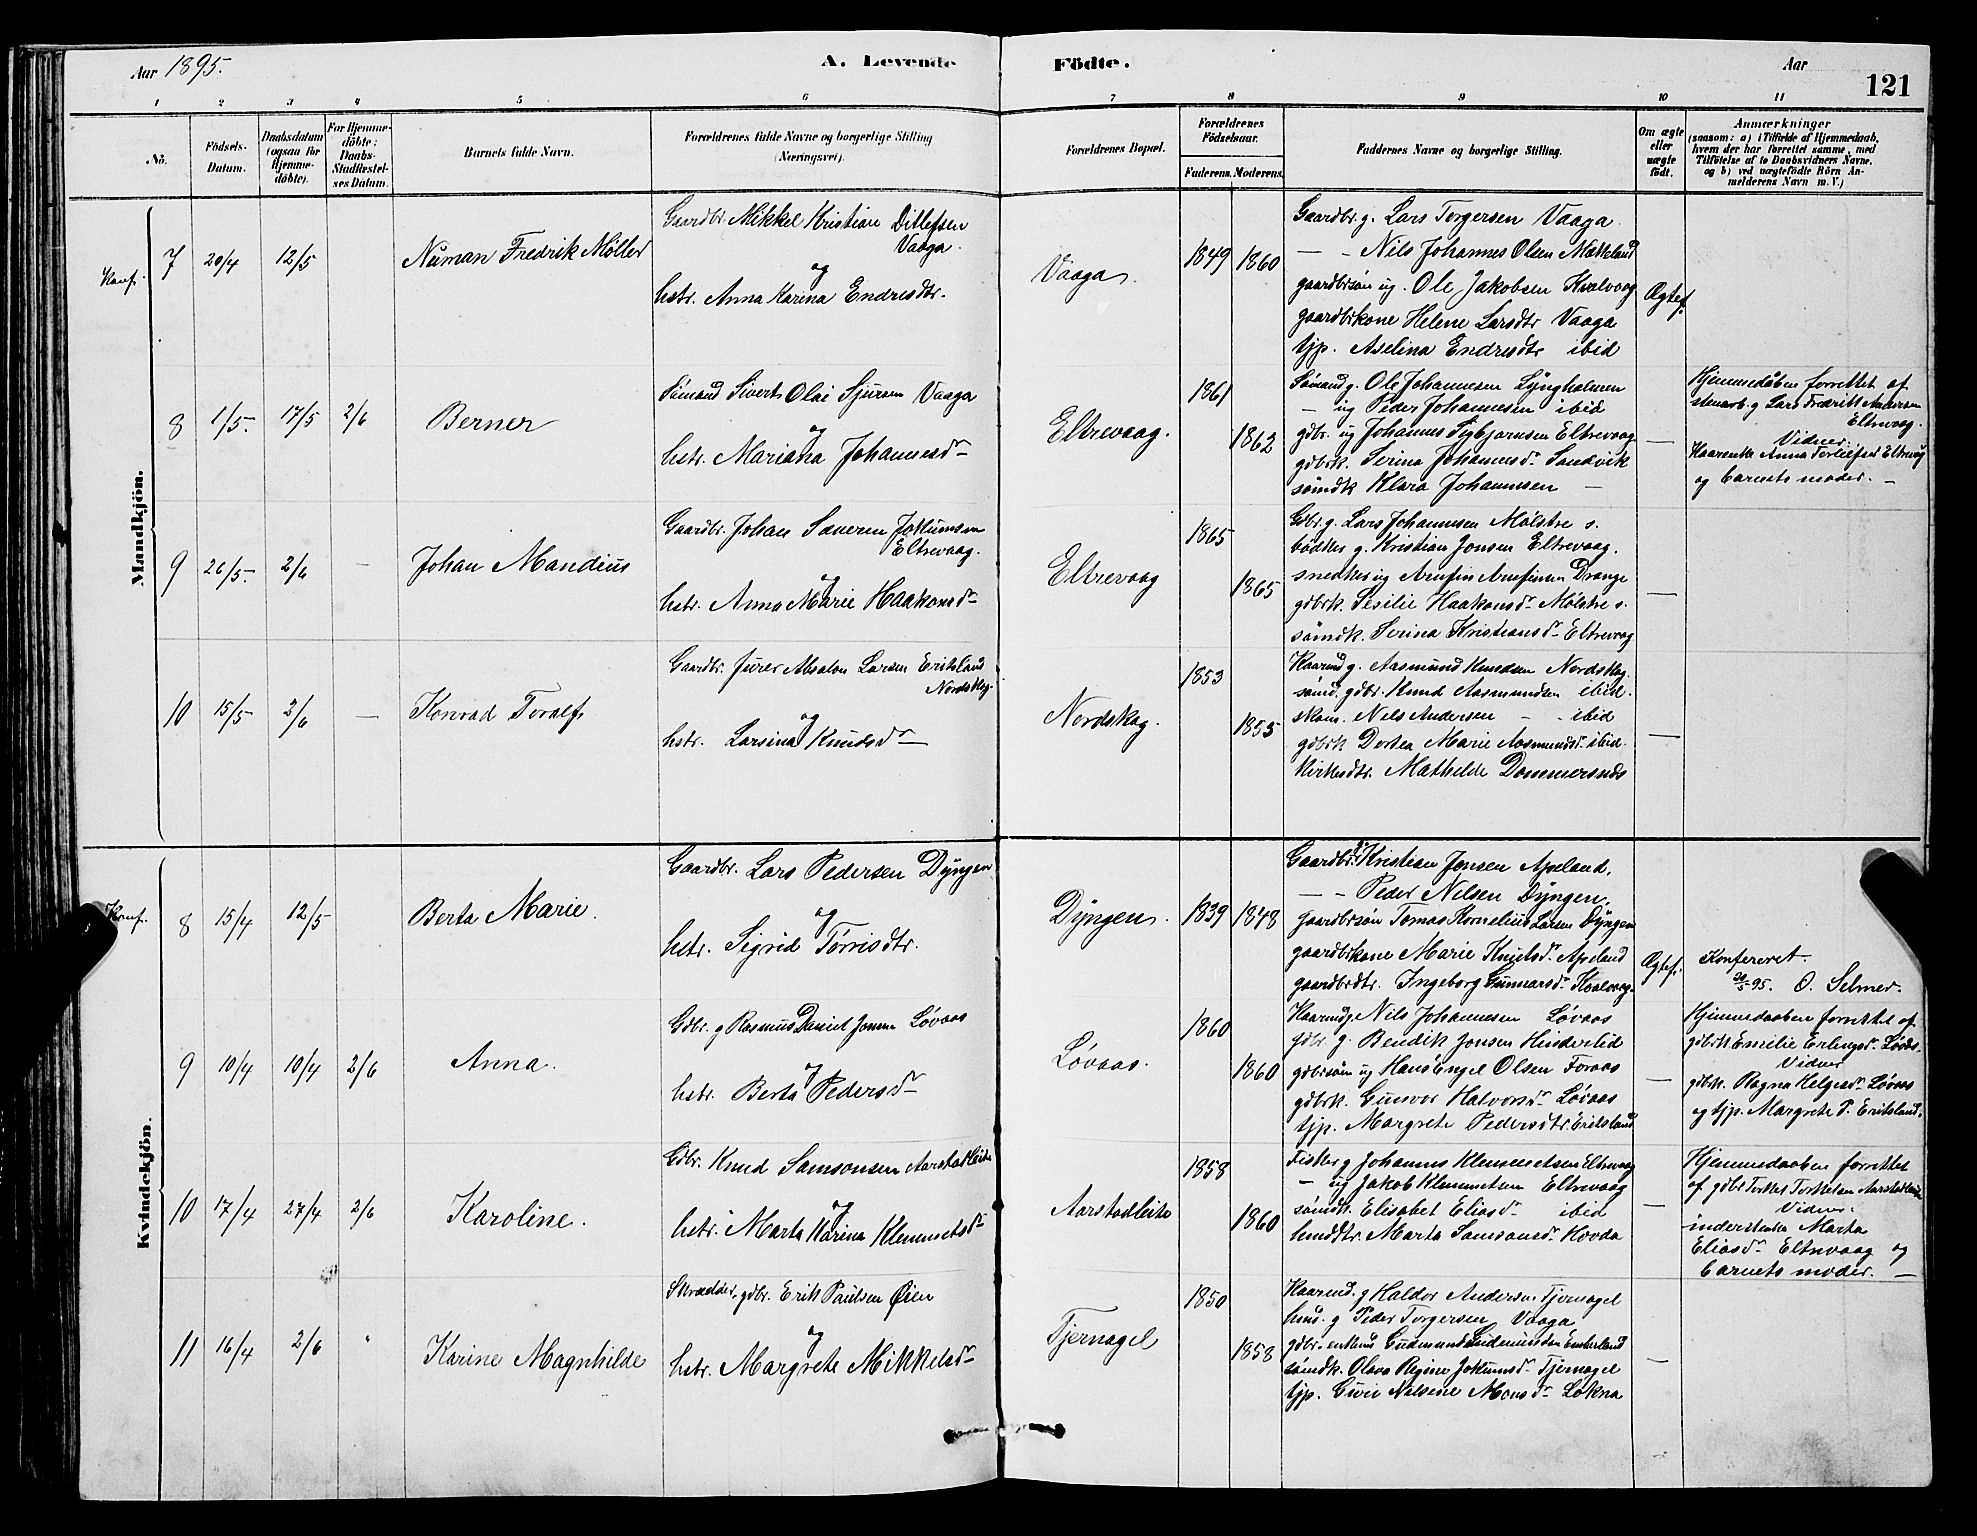 Aar 1895.
A. Levende
Födte.
Aar
121
1
2
3
4
5
6
7
8
9
10
11
No.
Födsels-
Datum.
Daabsdatum
(ogsaa for
Hjemme-
döbte).
For Hjemme-
döbte:
Daabs-
Stadfæstel-
ses Datum.
Barnets fulde Navn.
Forældrenes fulde Navne og borgerlige Stilling
(Næringsvei).
Forældrenes Bopæl.
Forældrenes
Födselsaar.
Faderens.
Moderens.
Faddernes Navne og borgerlige Stilling.
Om ægte
eller
uægte
födt.
Anmærkninger
(saasom: a) i Tilfælde af Hjemmedaab,
hvem der har forrettet samme, med
Tilföielse af to Daabsvidners Navne,
og b) ved uægtefödte Börn An-
melderens Navn m. V.)
Mandkjön.
Konf.
7
20/4
12/5
Numan Fredrik Møller
Gaardbr. Mikkel Kristian Ditlefsen
Vaaga.
og
hstr. Anna Karina Endresdtr.
Vaaga.
1849
1860
Gaardbr. g. Lars Torgersen Vaaga
— - Nils Johannes Olsen Mækeland
gaardbrsøn ug. Ole Jakobsen Kvalvaag
gaardbrkone Helene Larsdtr Vaaga
tjp. Aselina Endresdtr ibid
Ægtef.
8
1/5.
17/5
2/6
Berner
Sömand Sivert Olai Sjursen Vaaga
og
hstr. Mariana Johannesdr
Eltrevaag.
1861
1862
Sömand g. Ole Johannesen Lyngholmen
— ug Peder Johannesen ibid
gdbr. ug Johannes Eltrevaag
gdbrk. Serina Johannesdr Sandvik
sömdk Klara Johannesen —
—
Hjemmedåben forrettet af
stenarb. g Lars Fredrik Andersen
Eltrevaag.
Vidner
Anna Torleifsd Eltrevåg
og barnets moder. —
9
26/5.
2/6
—
Johan Mandius
Gaardbr. Johan Severin Jokumsen
Eltrevaag.
og
hstr. Anna Marie Haakonsdr
Eltrevaag
1865
1865
Gdbr. g. Lars Johannesen Mølstre s.
bødker g. Kristian Jonsen Eltrevaag.
snedker ug Arnfin Arnfinsen Drange
gdbrk. Sesilie Haakonsdr Mølstre s.
sömdk. Serina Kristiansdr Eltrevaag
—
10
15/5
2/6
—
Konrad Toralf
Gaardbr. Absalon Larsen Eritsland
Nordskog.
og
hstr. Larsina Knudsdr —
Nordskog.
1853
1855
Kaarmd g. Aasmund Knudsen Nordskog.
sömd. gdbr. Knud Aasmundsen ibid.
skom. Nels Andersen — ibid
gdbrk Dortea Marie Aasmundsdr ibid.
Mathilde Dommersnes
—
Kvindekjön.
Konf.
8
15/4
12/5
Berta Marie.
Gaardbr. Lars Pedersen Dyngen
og
hstr. Sigrid Tørrisdtr.
Dyngen.
1839
1848
Gaardbr. g Kristian Jonsen Apeland.
— - Peder Nelsen Dyngen.
gaardbrsøn Tomas Kornelius Larsen Dyngen
gaardbrkone Marie Knutsdr Apeland
gaardbrdtr. Ingeborg Gunnarsdr Kvalvaag.
Ægtef.
Konfereret.
20/5 95. O. Selmer.
9
10/4
10/4
2/6
Anna.
Gdbr. g Rasmus Daniel Jonsen Løvaas
og
hstr. Berta Pedersdr
Løvaas.
1860
1860
Kaarmd g. Nils Johannesen Løvaas
gdbr. g. Bendik Jonsen Hinderlid
gdbrsøn ug Hans Engel Olsen Foraas
gdbrk. Gunvor Halvorsdr Løvaas
tjp. Margrete Pedersdtr Eritsland
—
Hjemmedaaben forrettet af
gdbrk Emilie Erlingsdr Løvås.
Vidner
gdbrk. Ragna Helgesdr Løvaas
og tjp. Margrete P. Eritsland.
10
17/4
27/4
2/6
Karoline.
Gdbr. Knud Samsonsen Aarstadleite
og
hstr. Marta Karina Klemmetsdr
Aarstadleite
1858
1860
Fisker g Johannes Klemmetsen Eltrevaag
— ug Jakob Klemmetsen Eltrevaag
sömdk. Elisabet Eliasdr ibid
Marta Samsonsdr Hovda
—
Hjemmedaaben forrettet
af gdbr Torkel Torkelsen Aarstadleite
Vidner.
inderstenke Marta
Eliasdr Eltrevaag og
barnets moder. —
11
16/4
2/6
"
Karine Magnhilde
Skrædder, gdbr. Erik Paulsen Øien
og
hstr. Margrete Mikkelsdr
Tjernagel
1850
1858
Kaarmd. g Haldor Andersn. Tjernagel
husmd. g Peder Torgersen Vaaga
gdbr. enkem Gudmund Gudmundsen Emberland
sömdk. Olava Regine Jokumsdr Tjernagel
tjp. Nelsine Monsdr Lokna
—